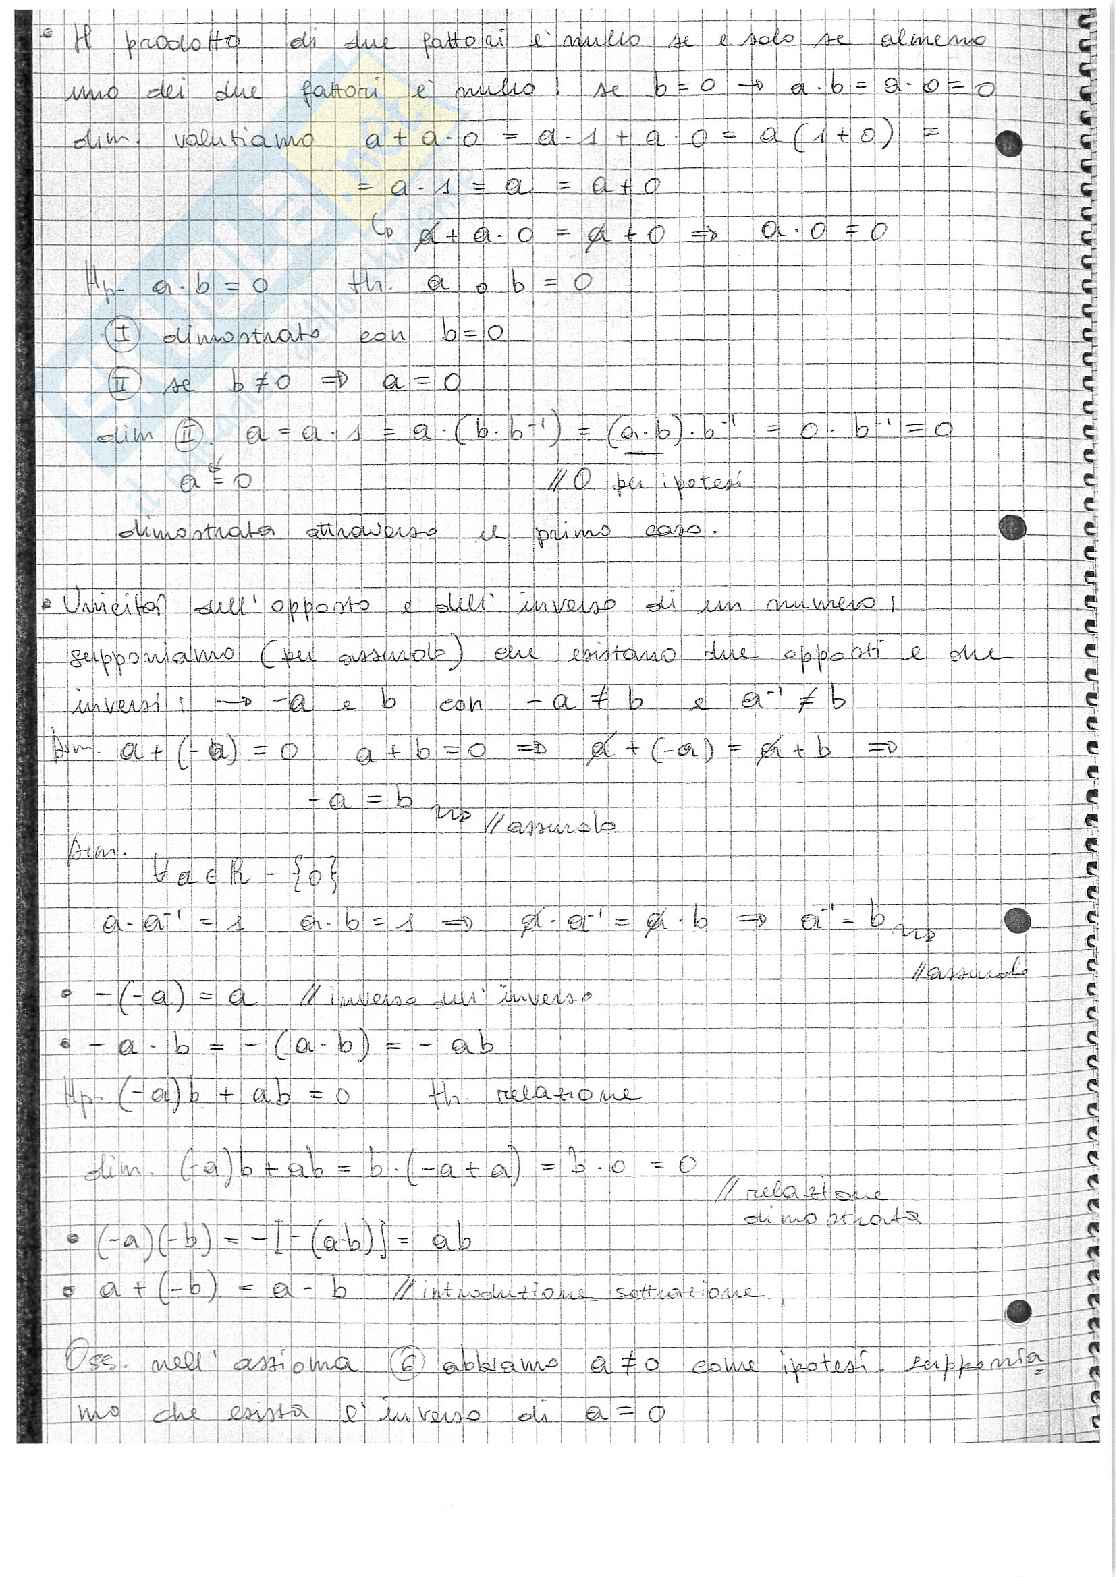 • Il prodotto di due fattori è nullo se e solo se almeno
uno dei due fattori è nullo: se b = 0 → a·b = a·0 = 0
dim. valutiamo a + a·0 = a·1 + a·0 = a(1+0) =
= a·1 = a = a+0
↳ a + a·0 = a + 0 ⇒ a·0 = 0
Hp. a·b = 0 th. a o b = 0
Ⓘ dimostrato con b = 0
Ⓘⓘ se b ≠ 0 ⇒ a = 0
dim Ⓘⓘ. a = a·1 = a·(b·b⁻¹) = (a·b)·b⁻¹ = 0·b⁻¹ = 0
a = 0 // 0 per ipotesi
dimostrata attraverso il primo caso.
• Unicità dell'opposto e dell'inverso di un numero:
supponiamo (per assurdo) che esistano due opposti e due
inversi: → -a e b con -a ≠ b e a⁻¹ ≠ b
Dim. a + (-a) = 0 a + b = 0 ⇒ a + (-a) = a + b ⇒
-a = b
// assurdo
Dim.
∀ a ∈ R - {0}
a·a⁻¹ = 1 a·b = 1 ⇒ a·a⁻¹ = a·b ⇒ a⁻¹ = b
// assurdo
• -(-a) = a // inverso dell'inverso
• -a·b = -(a·b) = -ab
Hp. (-a)b + ab = 0 th. relazione
dim. (-a)b + ab = b·(-a+a) = b·0 = 0
// relazione
dimostrata
• (-a)(-b) = -[-(ab)] = ab
• a + (-b) = a - b // introduzione sottrazione
Oss. nell'assioma ⑥ abbiamo a ≠ 0 come ipotesi. supponia
mo che esista l'inverso di a = 0